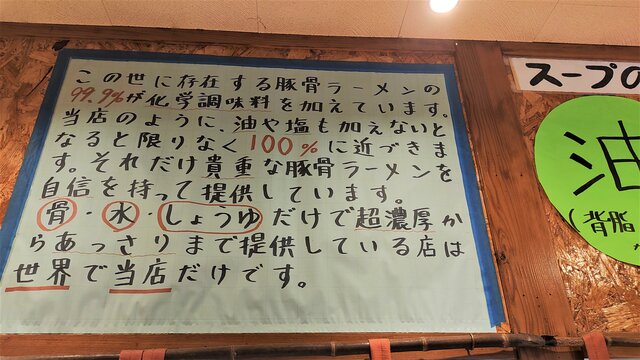 この世に存在する豚骨ラーメンの
99.9%が化学調味料を加えています。
当店のように、油や塩も加えないと
なると限りなく100%に近づきま
す。それだけ貴重な豚骨ラーメンを
自信を持って提供しています。
骨・水・しょうゆだけで超濃厚か
らあっさりまで提供している店は
世界で当店だけです。
スープの
油
(背脂